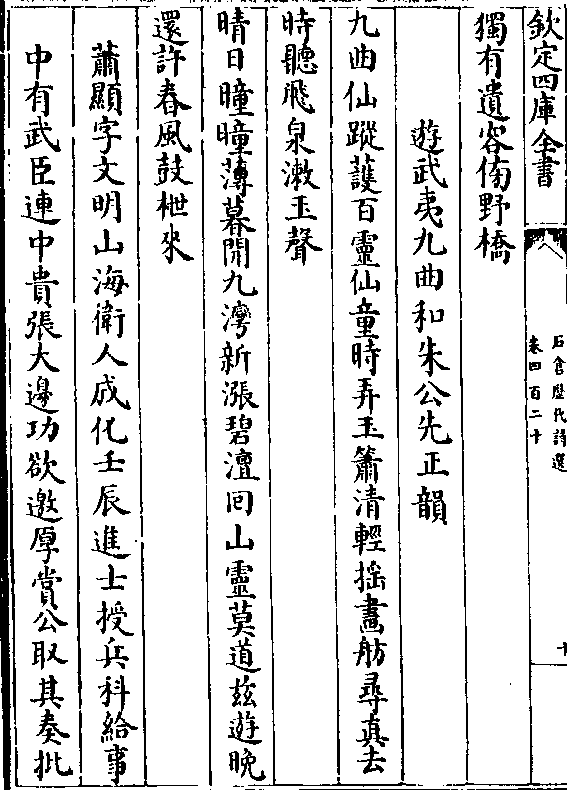 欽定四庫全書
石倉歷代詩選
卷四百二十
十
獨有遺容俯野橋
遊武夷九曲和朱公先正韻
九曲仙蹤護百靈仙童時弄玉簫清輕搖畫舫尋真去
時聽飛泉漱玉聲
晴日曈曈薄暮開九灣新漲碧澶囘山靈莫道兹遊晚
還許春風鼓枻來
蕭顯字文明山海衛人成化壬辰進士授兵科給事
中有武臣連中貴張大邊功欲邀厚賞公取其奏批